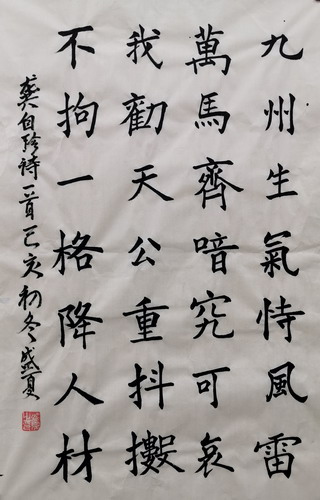 九州生氣恃風雷
萬馬齊喑究可哀
我勸天公重抖擻
不拘一格降人材
龔自珍詩一首己亥初冬盛夏